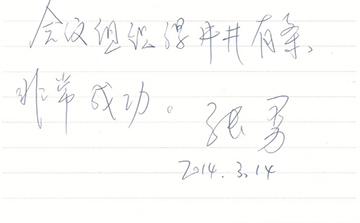 会议组织得井井有条、
非常成功。
张勇
2014.3.14